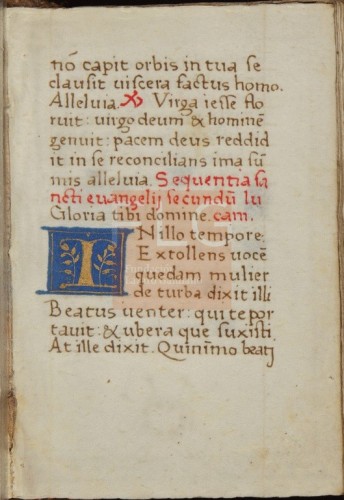 nō capit orbis in tua se
clausit uiscera factus homo.
Alleluia. ℣ Virga iesse flo
ruit: uirgo deum & hominē
genuit: pacem deus reddid
it in se reconcilians ima sū
mis alleluia. Sequentia sa
ncti euangelij secundū lu
Gloria tibi domine. cam.
IN illo tempore:
Extollens uocē
quedam mulier
de turba dixit illi
Beatus uenter: qui te por
tauit: & ubera que suxisti
At ille dixit. Quinimo beatj